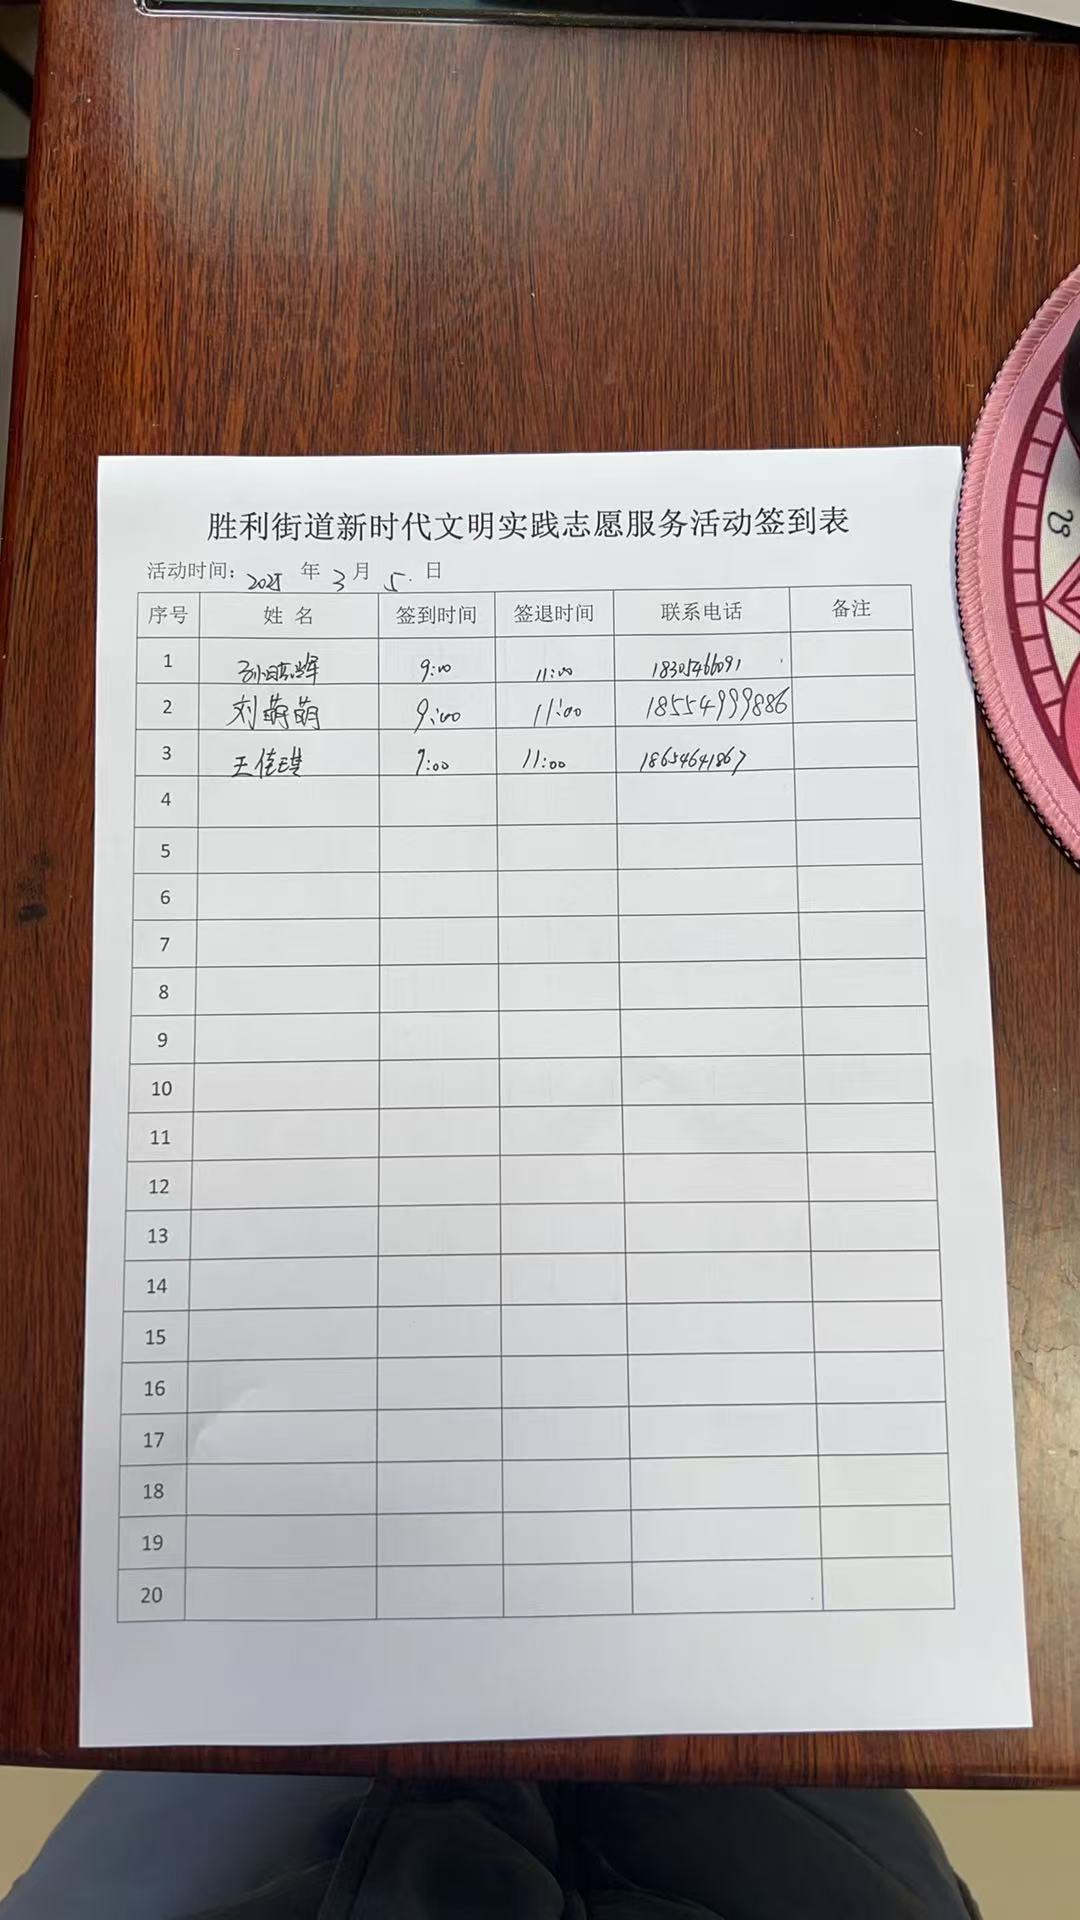 胜利街道新时代文明实践志愿服务活动签到表
活动时间: 2025 年 3 月 5. 日
序号 姓 名 签到时间 签退时间 联系电话 备注
1 9:00 11:00 18305466091
2 刘萌萌 9:00 11:00 18554999886
3 王佳琪 9:00 11:00 18654641867
4
5
6
7
8
9
10
11
12
13
14
15
16
17
18
19
20